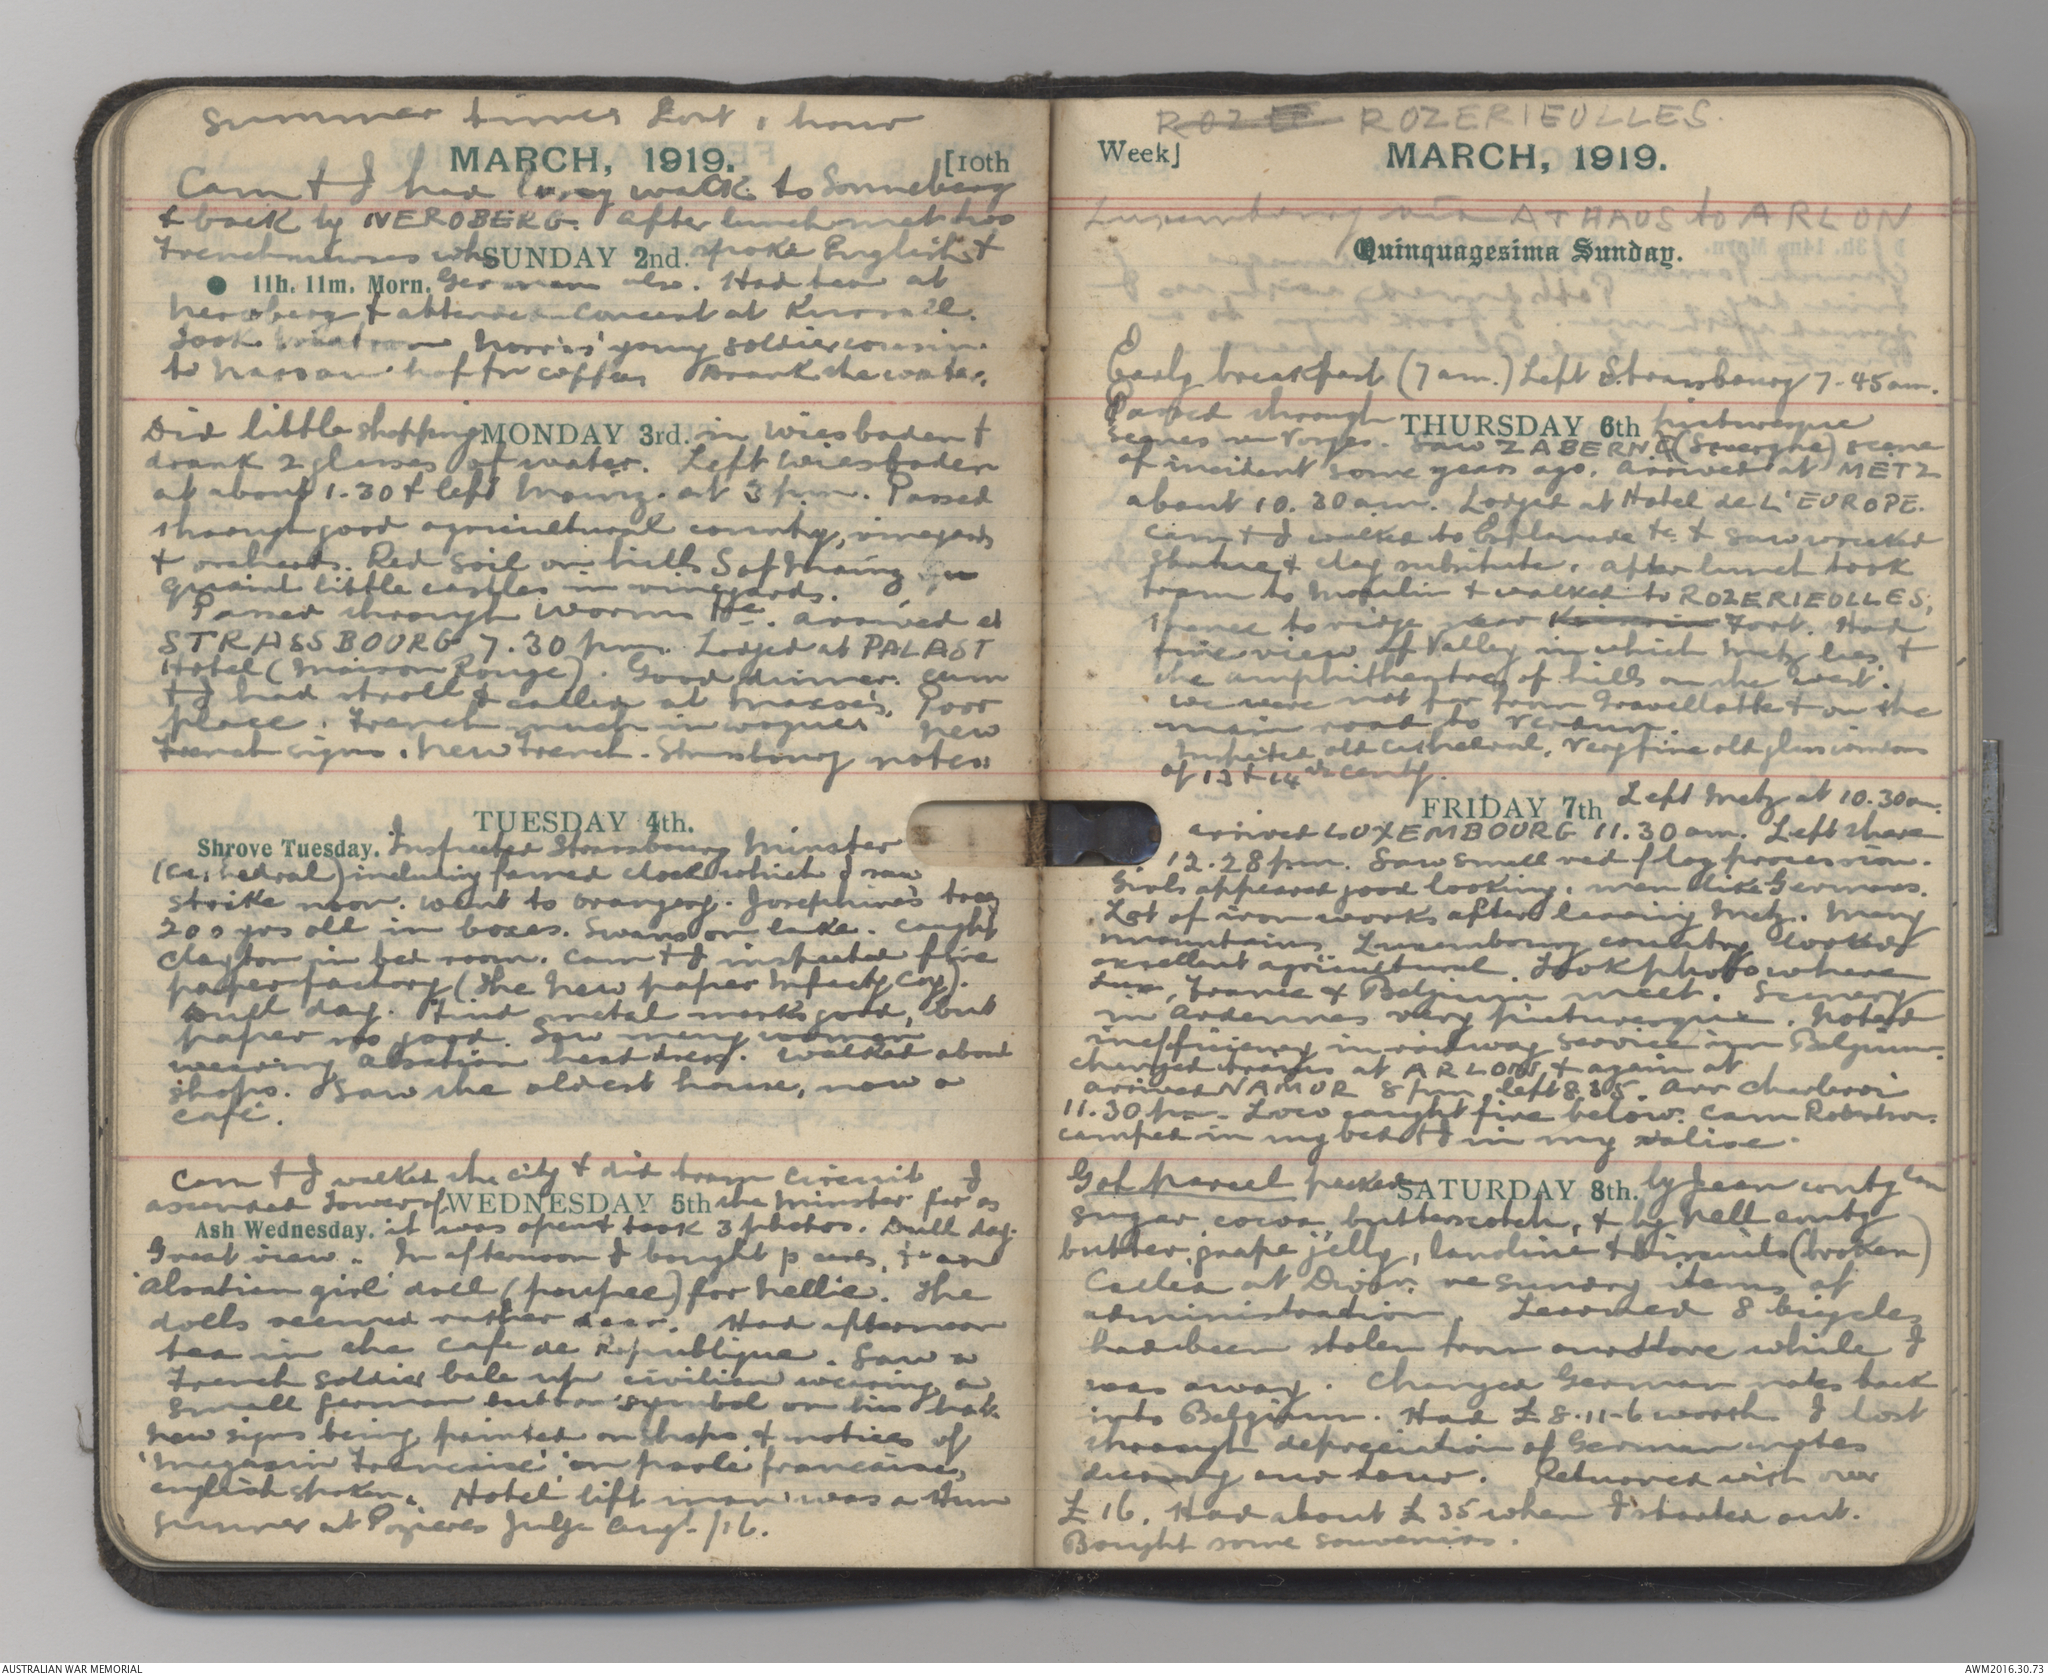 Summer times lost 1 hour
MARCH, 1919. [10th
Cam & I had long walk to Sonneberg
& back by NEROBERG. After lunch met two
French nurses who spoke English &
SUNDAY 2nd.
11h. 11m. Morn. German also. Had tea at
Neroberg & attended concert at Kursaal.
Took Norris' young soldier cousin
to Nassau hof for coffee. Drank the water.
Did little shopping in Wiesbaden &
MONDAY 3rd.
drank 2 glasses of water. Left Wiesbaden
at about 1.30 & left Mainz at 3 pm. Passed
through good agricultural country, vineyards
& orchards. Red soil on hills S of Mainz
quaint little castles in vineyards.
Passed through Worms &c. arrived at
STRASSBOURG 7.30 pm. Lodged at PALAST
Hotel (Maison Rouge). Good dinner. Cam
& I had stroll & called at Maxxes. Poor
place. French much in vogue. New
French signs. New French-Strasbourg notes
TUESDAY 4th.
Shrove Tuesday. Inspected Strassbourg Minster
(Cathedral) including famed clock which I saw
strike noon. Went to orangery. Josephine's trees
200 yrs old in boxes. Swans on lake. Caught
Clayton in bed room. Cam & I inspected fine
paper factory (The New paper Mfacty Coy).
Dull day. Find metal marks good, but
paper no good. Saw many women
wearing Alsatian head dress. Walked about
shops. Saw the oldest house, now a
café.
Cam & I walked the city & did tram circuit. I
ascended Tower of the Minster far as
WEDNESDAY 5th
Ash Wednesday. it was open & took 3 photos. Dull day.
Great view. In afternoon I bought p cards, & an
'Alsatian girl' doll (poupee) for Nellie. The
dolls seemed rather dear. Had afternoon
tea in the Cafe de Republique. Saw a
French soldier bale up civilian wearing a
small German button symbol on his hat.
New signs being painted on shops & notices of
'Magasin Francaise' 'on parle francaise,
english spoken. Hotel lift man was a Hun
gunner at Pozieres July Augt /16.
ROZE ROZERIEULLES.
Week] MARCH, 1919.
Luxembourg via ATHAUS to ARLON
Quinquagesima Sunday.
Early breakfast (7am.) Left Strassbourg 7-45am.
Passed through picturesque
THURSDAY 6th
scenes in Vosges. Saw ZABERNE (Saverne) scene
of incident some years ago. Arrived at METZ
about 10.30am. Lodged at Hotel de L'EUROPE.
Cam & I walked to Esplanade &c & saw wrecked
statue & clay substitute. After lunch took
tram to Moulin & walked to ROZERIEULLES,
thence to ridge near Fort. Had
fine view of Valley in which Metz lies &
the amphitheatre of hills on the west.
We were not far from Gravellotte & on the
main road to Verdun.
Inspected old Cathedral. Very fine old glass windows
of 13 & 14th centy.
FRIDAY 7th Left Metz at 10.30am.
arrived LUXEMBOURG 11.30am. Left there
12.28pm. Saw small red flag procession.
Girls appeared good looking, men like Germans.
Lot of iron works after leaving Metz. Many
mountains. Luxembourg country looked
excellent agricultural. Took photo where
Lux, France & Belgium meet. Scenery
in Ardennes very picturesque. Noted
inefficiency in railway service in Belgium.
Changed trains at ARLON & again at
arrived NAMUR 8pm left 8.35. Arr Charleroi
11.30 pm. Loco caught fire below. Cam Robertson
camped in my bed & I in my valise.
Got parcel packed by Jean contg
SATURDAY 8th.
sugar cocoa butterscotch, & by Nell contg
butter, grape jelly, lanoline & biscuits (broken)
Called at Divn. re sundry items of
administration. Learned 8 bicycles
had been stolen from our store while I
was away. Changed German notes back
into Belgium. Had £8-11-6 worth. I lost
through depreciation of German notes
during our tour. Returned with over
£16. Had about £35 when I started out.
Bought some souvenirs.
AUSTRALIAN WAR MEMORIAL
AWM2016.30.73